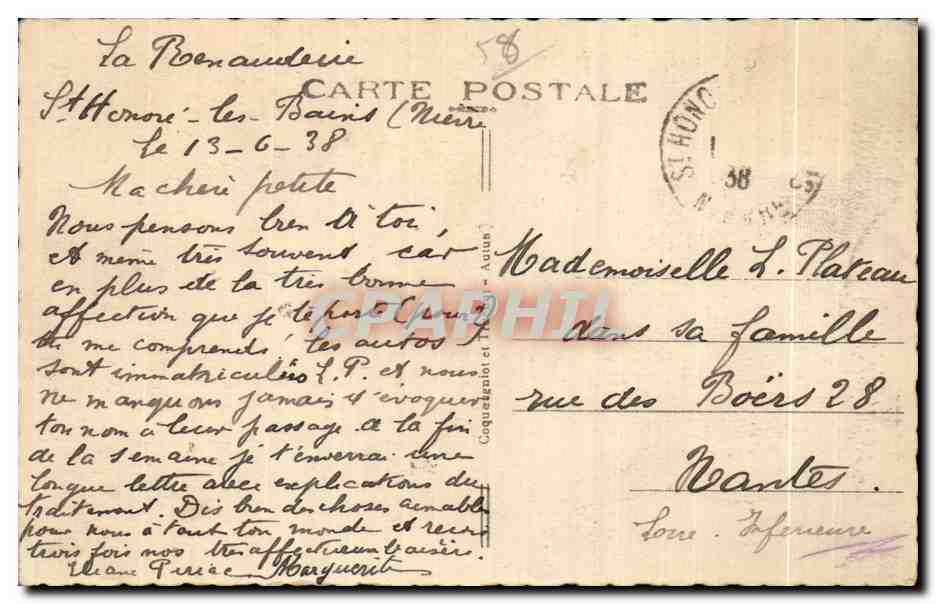 La Renauderie
58
CARTE POSTALE
St Honoré-les-Bains (Nièvre
le 13-6-38
St HONO
38
Ma chère petite
Nous pensons bien à toi,
et même très souvent car
en plus de la très bonne
affection que je te porte (pour
tu me comprends, les autos
sont immatriculées L.P. et nous
ne manquons jamais d'évoquer
ton nom à leur passage. A la fin
de la semaine je t'enverrai une
longue lettre avec explications du
traitement. Dis bien des choses aimables
pour nous à tout ton monde et reçois
trois fois nos très affectueux baisers.
Marguerite
Coquengniot et - Autun
CPARPHIL
Mademoiselle L. Plateau
dans sa famille
rue des Boërs 28
Nantes.
Loire Inférieure